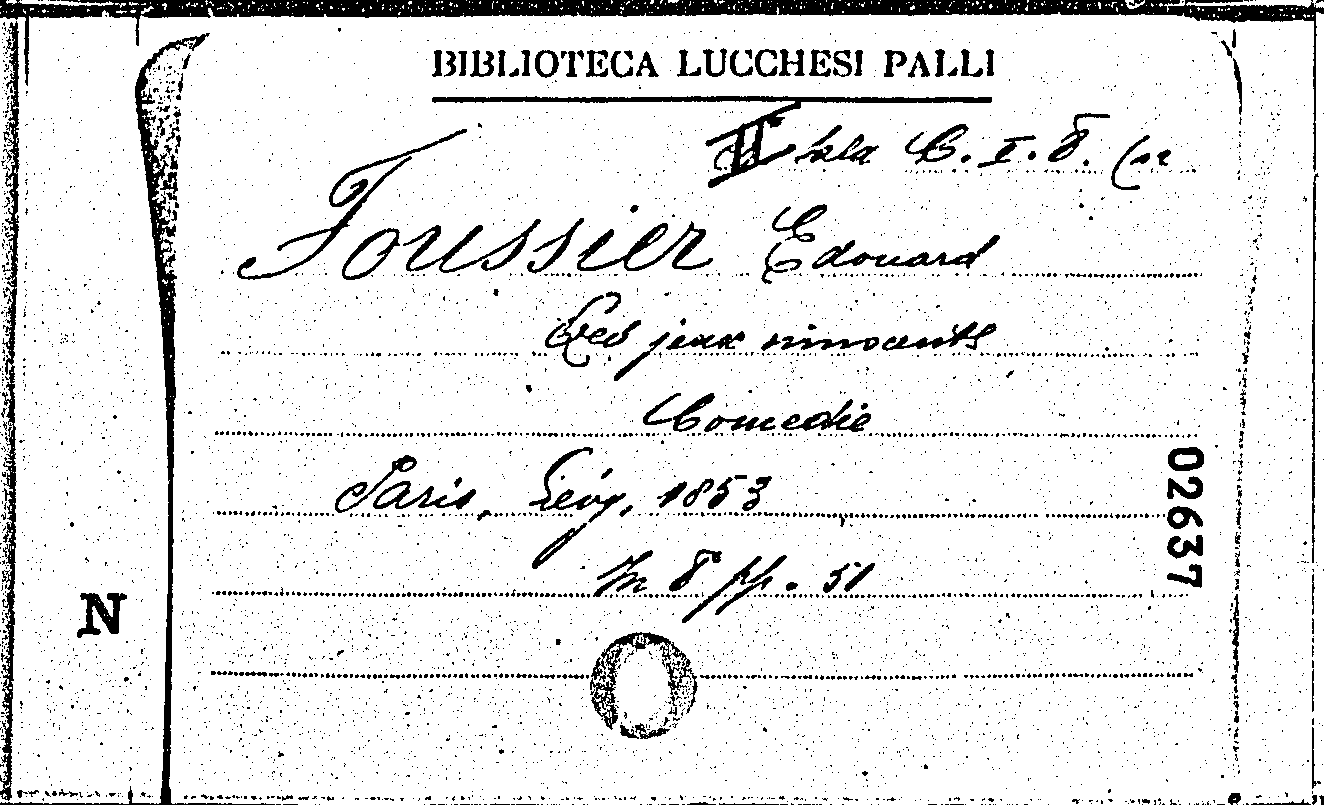 BIBLIOTECA LUCCHESI PALLI
II Sala C. I. 8. (12
Foussier Edouard
Les jeux innocents
Comedie
Paris, Lévy, 1853
In 8° pp. 51
02637
N